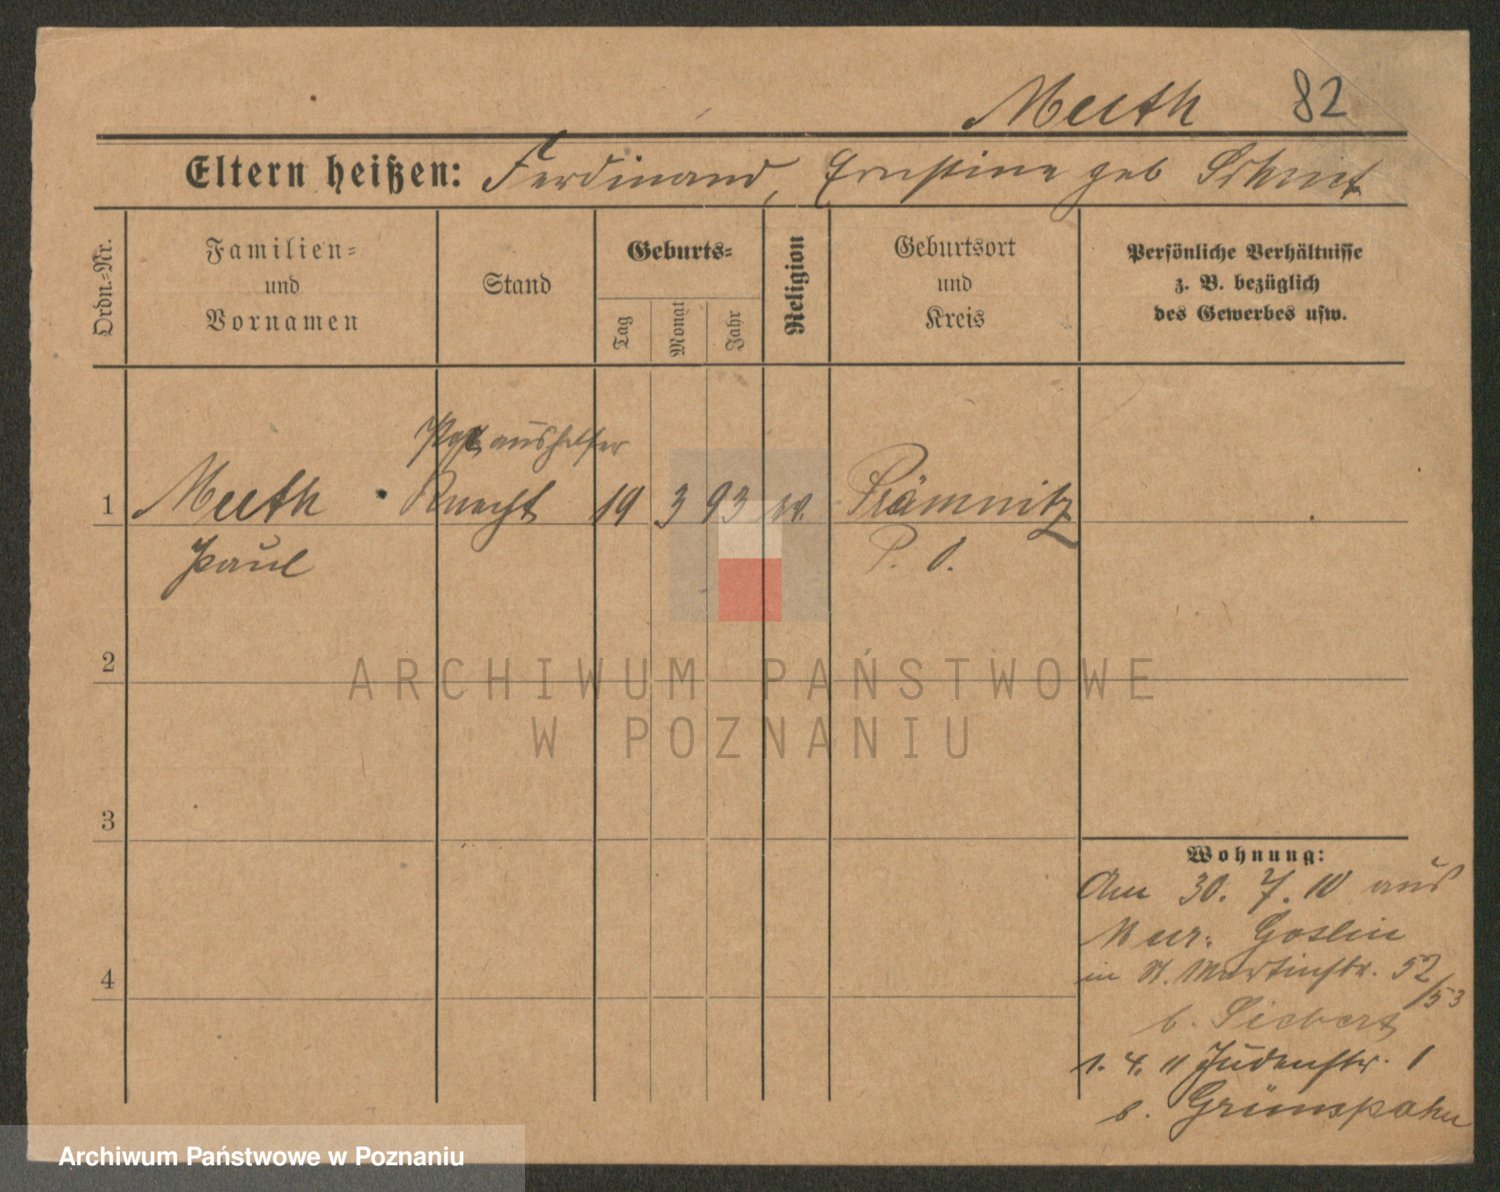 Meeth 82
Eltern heißen: Ferdinand, Ernstine geb Schmit
Ordn.-Nr.
Familien-
und
Vornamen
Stand
Geburts-
Tag
Monat
Jahr
Religion
Geburtsort
und
Kreis
Persönliche Verhältnisse
z. B. bezüglich
des Gewerbes usw.
Postaushelfer
1 Meeth Knecht 19 3 93 ev. Prämnitz
Paul P. O.
2
3
4
Wohnung:
Am 30. 7. 10 aus
Mur. Goslin
in St. Martinstr. 52/53
b. Siebert
1. 4. 11 Judenstr. 1
b. Grünspahn
ARCHIWUM PAŃSTWOWE
W POZNANIU
Archiwum Państwowe w Poznaniu